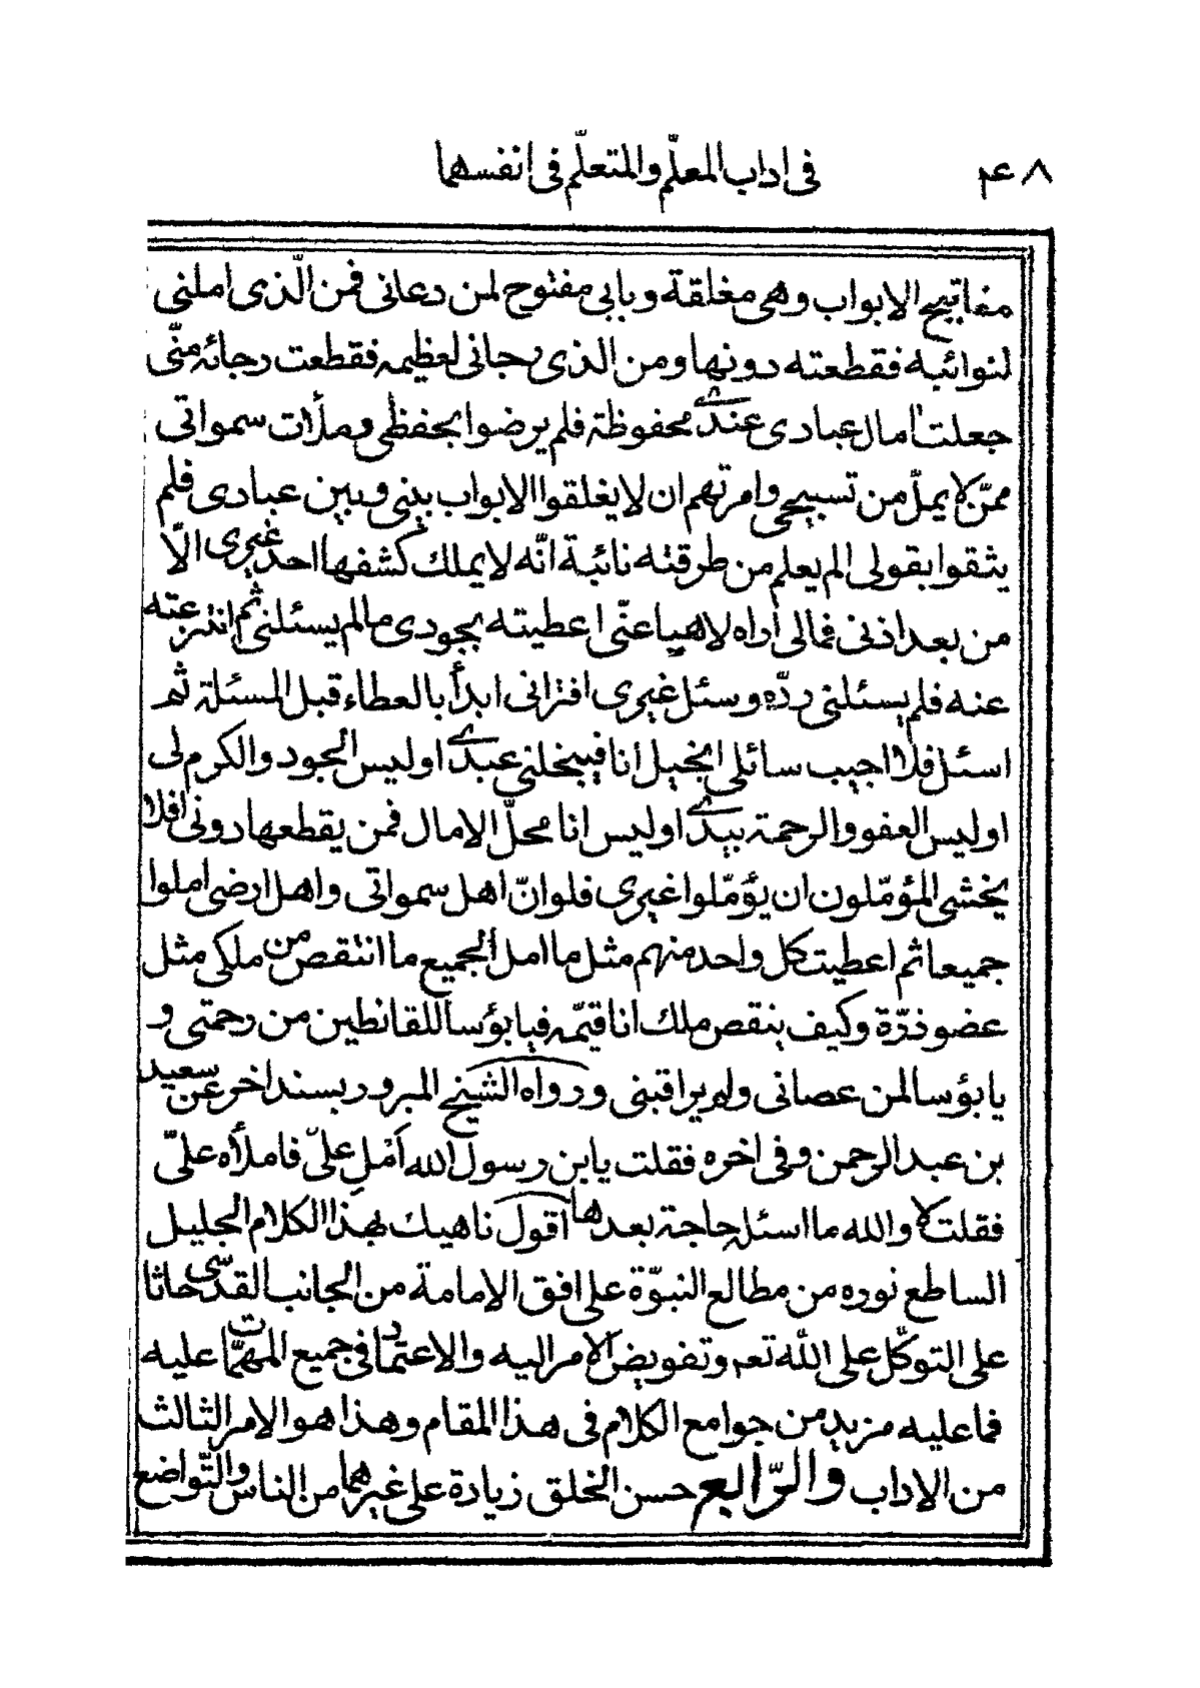 ۴۸ فى اداب المعلّم والمتعلّم فى انفسهما
مفاتيح الابواب وهى مغلقة وبابى مفتوح لمن دعانى فمن الّذى املنى
لنوائبه فقطعته دونها ومن الذى رجانى لعظيمه فقطعت رجائه منّى
جعلت امال عبادى عندى محفوظة فلم يرضوا بحفظى وملأت سمواتى
ممّن لا يملّ من تسبيحى وامرتهم ان لا يغلقوا الابواب بينى وبين عبادى فلم
يثقوا بقولى الم يعلم من طرقته نائبة انّه لا يملك كشفها احد غيرى الّا
من بعد اذنى فمالى أراه لاهيا عنّى اعطيته بجودى مالم يسئلنى ثم انتزعته
عنه فلم يسئلنى ردّه وسئل غيرى افترانى ابدأ بالعطاء قبل المسئلة ثم
اسئل فلا اجيب سائلى ابخيل انا فيبخلنى عبدى اوليس الجود والكرم لى
اوليس العفو والرحمة بيدى اوليس انا محلّ الامال فمن يقطعها دونى افلا
يخشى المؤمّلون ان يؤمّلوا غيرى فلوانّ اهل سمواتى واهل ارضى املوا
جميعا ثم اعطيت كل واحد منهم مثل ما امل الجميع ما انتقص من ملكى مثل
عضو ذرّة وكيف ينقص ملك انا قيّمه فيا بؤسا للقانطين من رحمتى و
يا بؤسا لمن عصانى ولم يراقبنى ورواه الشيخ المبرور بسند اخر عن سعيد
بن عبد الرحمن وفى اخره فقلت يابن رسول الله اَمْلِ علىّ فاملأه علىّ
فقلت لا والله ما اسئله حاجة بعدها اقول ناهيك بهذا الكلام الجليل
الساطع نوره من مطالع النبوّة على افق الامامة من الجانب القدسى حاثا
على التوكّل على اللّه تعم وتفويض الامر اليه والاعتماد فى جميع المهمّات عليه
فما عليه مزيد من جوامع الكلام فى هذا المقام وهذا هو الامر الثالث
من الاداب والرّابع حسن الخلق زيادة على غيرهما من الناس والتّواضع